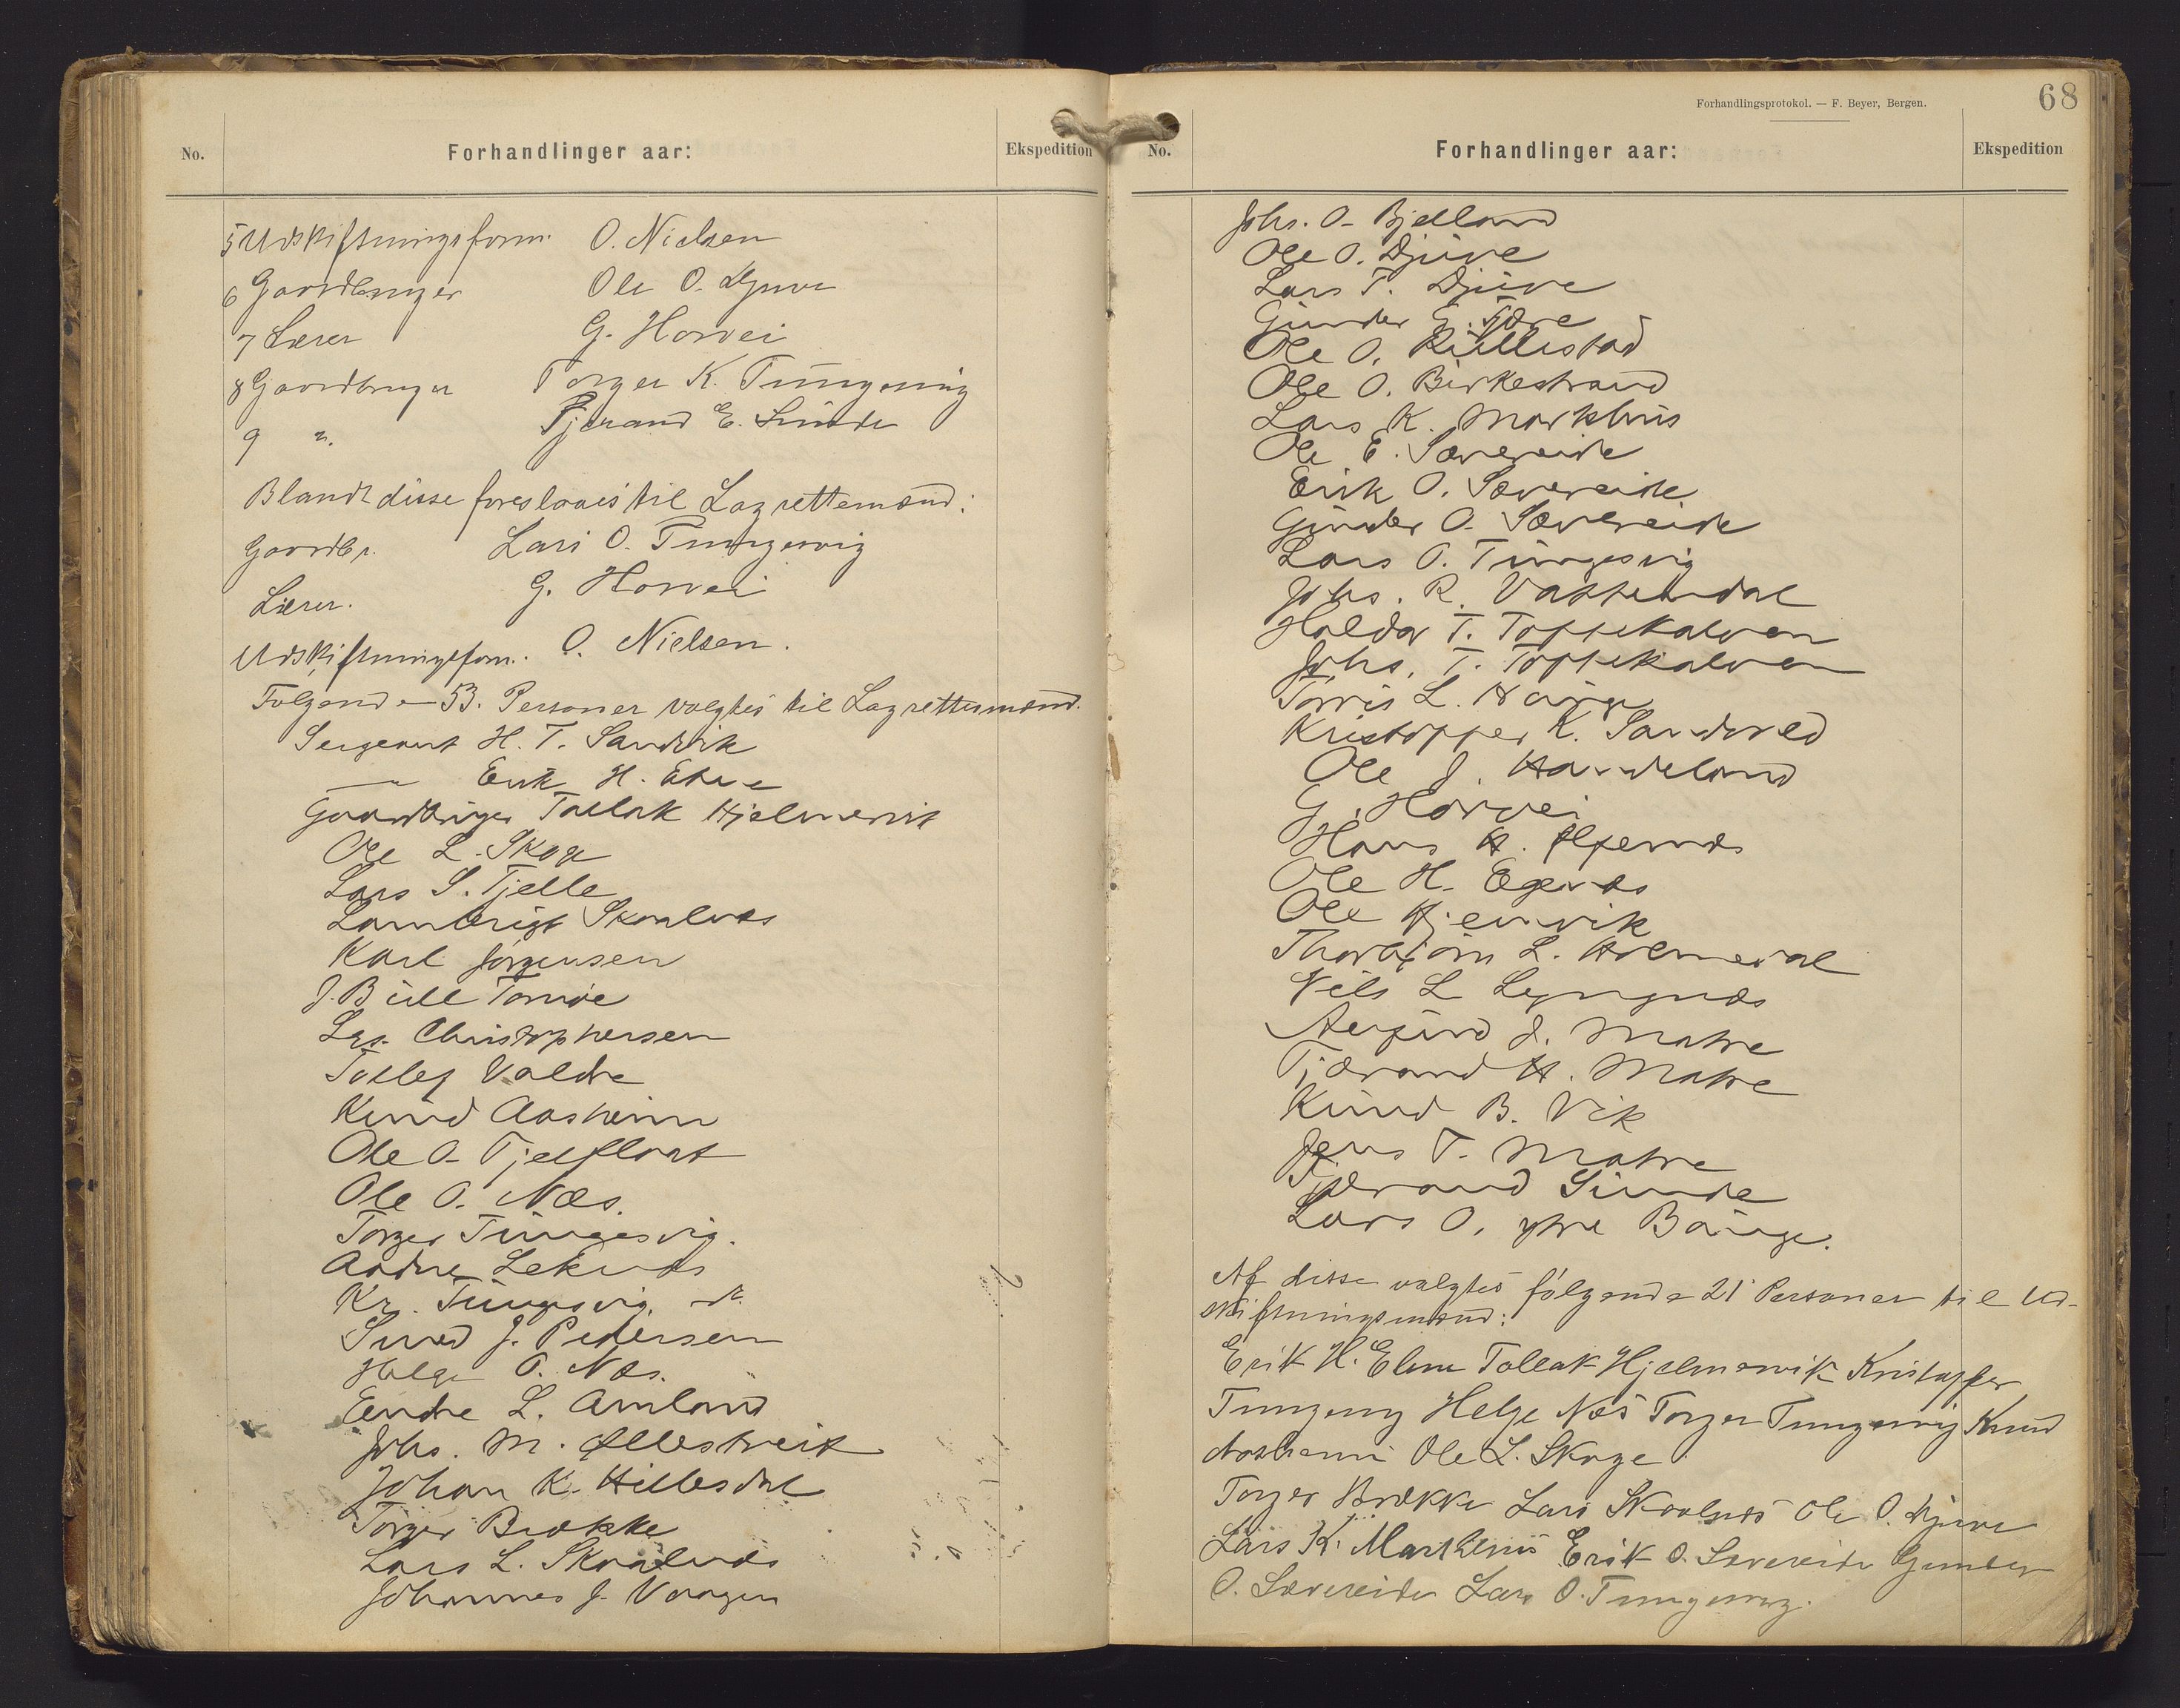 No.
Forhandlinger aar:
Ekspedition
5 Udskiftningsform. O. Nielsen
6 Gaardbruger Ole O. Djuve
7 Lærer G. Horvei
8 Gaardbruger Torger K. Tungesvig
9 " Tjerand E. Sunde
Blandt disse foresloaes til Lagrettemænd:
Gaardbr. Lars O. Tungesvig
Lærer. G. Horvei
Udskiftningsform. O. Nielsen.
Følgende 53. Personer valgtes til Lagrettemænd.
Sergeant H. T. Sandvik
— " Erik H. Ebne
Gaardbruger Tollak Hjelmervik
Ole L. Skoge
Lars S. Tjelle
Lambrigt Skaalnæs
Karl Jørgensen
J. Bull Tornøe
Lars Christophersen
Tollef Valdre
Knud Aasheim
Ole O. Tjelflaat
Ole O. Næs.
Torger Tungesvig.
Aadne Leknæs
Kr. Tungesvig.
J. Pedersen
Helge O. Næs.
Endre L. Amland
Johs. M. Øllestveit
Johan K. Hillesdal
Torger Brække
Lars L. Skaalnæs
Johannes J. Vaagen
Forhandlingsprotokol. — F. Beyer, Bergen.
68
No.
Forhandlinger aar:
Ekspedition
Johs. O. Bjelland
Ole O. Djuve
Lars T. Djuve
Gunder G. Fjære
Ole O. Rullestad
Ole O. Birkestrand
Lars K. Markhus
Ole E. Sævereide
Erik O. Sævereide
Gunder O. Sævereide
Lars O. Tungesvig
Johs. R. Vattendal
Haldor T. Toftekalven
Johs. T. Toftekalven
Torris L. Hauge
Kristoffer K. Sandved
Ole J. Handeland
G. Horvei
Hans H. Ølfernæs
Ole H. Egenæs
Ole Hjemvik
Thorbjørn L. Holmedal
Nils L Lyngnæs
J. Matre
Tjærand H. Matre
Knud B. Vik
Jens T. Matre
Tjærand Sunde
Lars O. ytre Bauge.
Af disse valgtes følgende 21 Personer til Ud-
skiftningsmænd:
Erik H. Ebne Tollak Hjelmervik Kristoffer
Tungesvig Helge Næs Torger Tungesvig Knud
Aasheim Ole L. Skoge
Torger Brække Lars Skaalnæs Ole O. Djuve
Lars K. Markhus Erik O. Sævereide Gunder
O. Sævereide Lars O. Tungesvig.